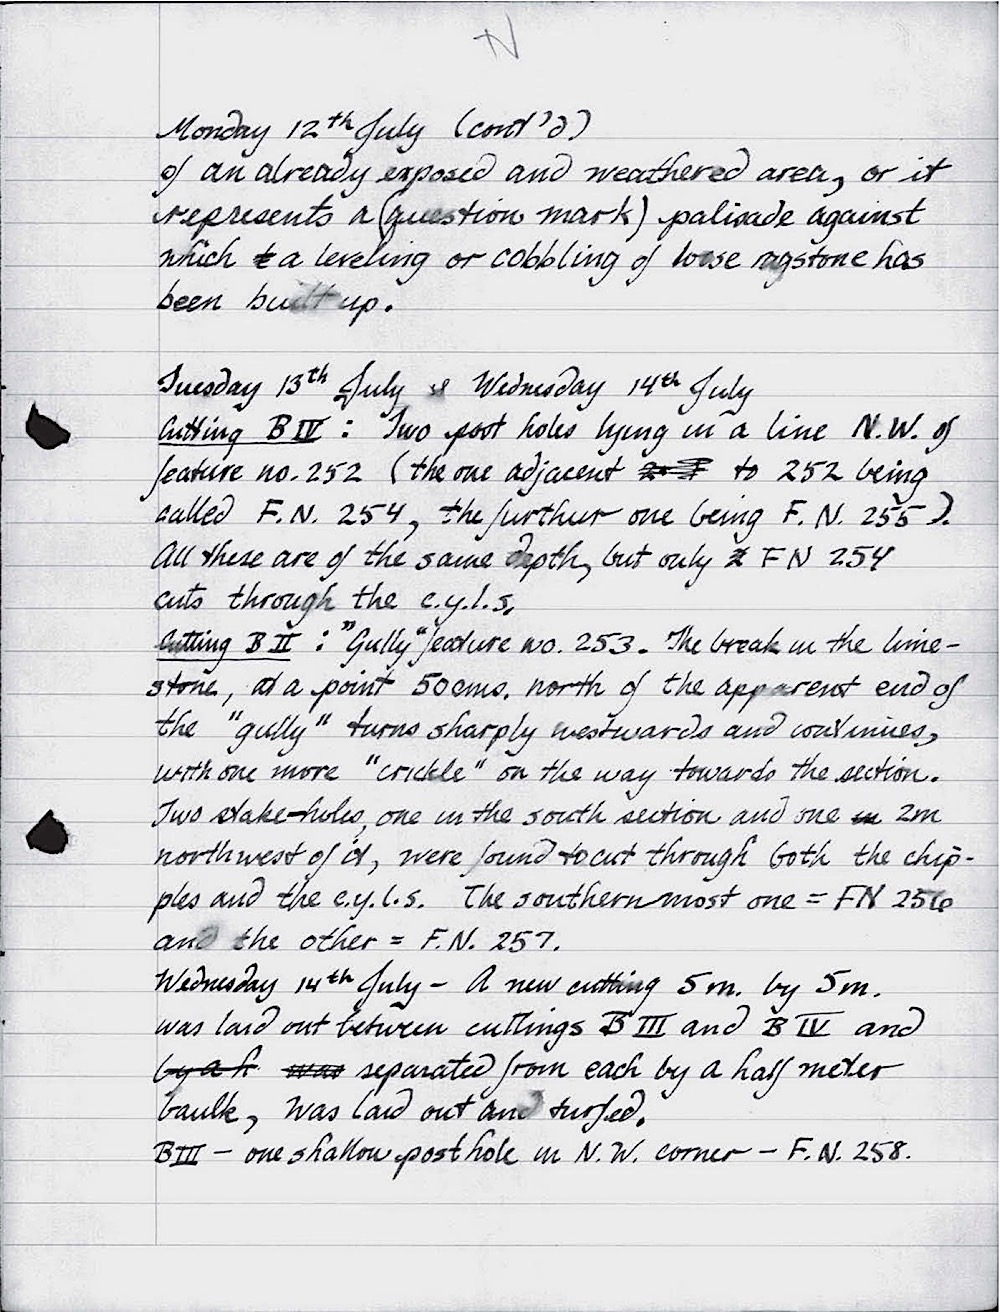 N
Monday 12th July (cont'd)
of an already exposed and weathered area, or it
represents a (question mark) palisade against
which a leveling or cobbling of loose ragstone has
been built up.
Tuesday 13th July & Wednesday 14th July
Cutting B IV : Two post holes lying in a line N.W. of
feature no. 252 (the one adjacent to 252 being
called F.N. 254, the further one being F.N. 255).
All these are of the same depth, but only FN 254
cuts through the c.y.l.s.
Cutting B II : "Gully" feature no. 253. The break in the lime-
stone, at a point 50cms. north of the apparent end of
the "gully" turns sharply westwards and continues,
with one more "crickle" on the way towards the section.
Two stake-holes, one in the south section and one 2m
northwest of it, were found to cut through both the chip-
ples and the c.y.l.s. The southern most one = FN 256
and the other = F.N. 257.
Wednesday 14th July - A new cutting 5m. by 5m.
was laid out between cuttings B III and B IV and
by a h was separated from each by a half meter
baulk, was laid out and turfed.
BIII - one shallow posthole in N.W. corner - F.N. 258.